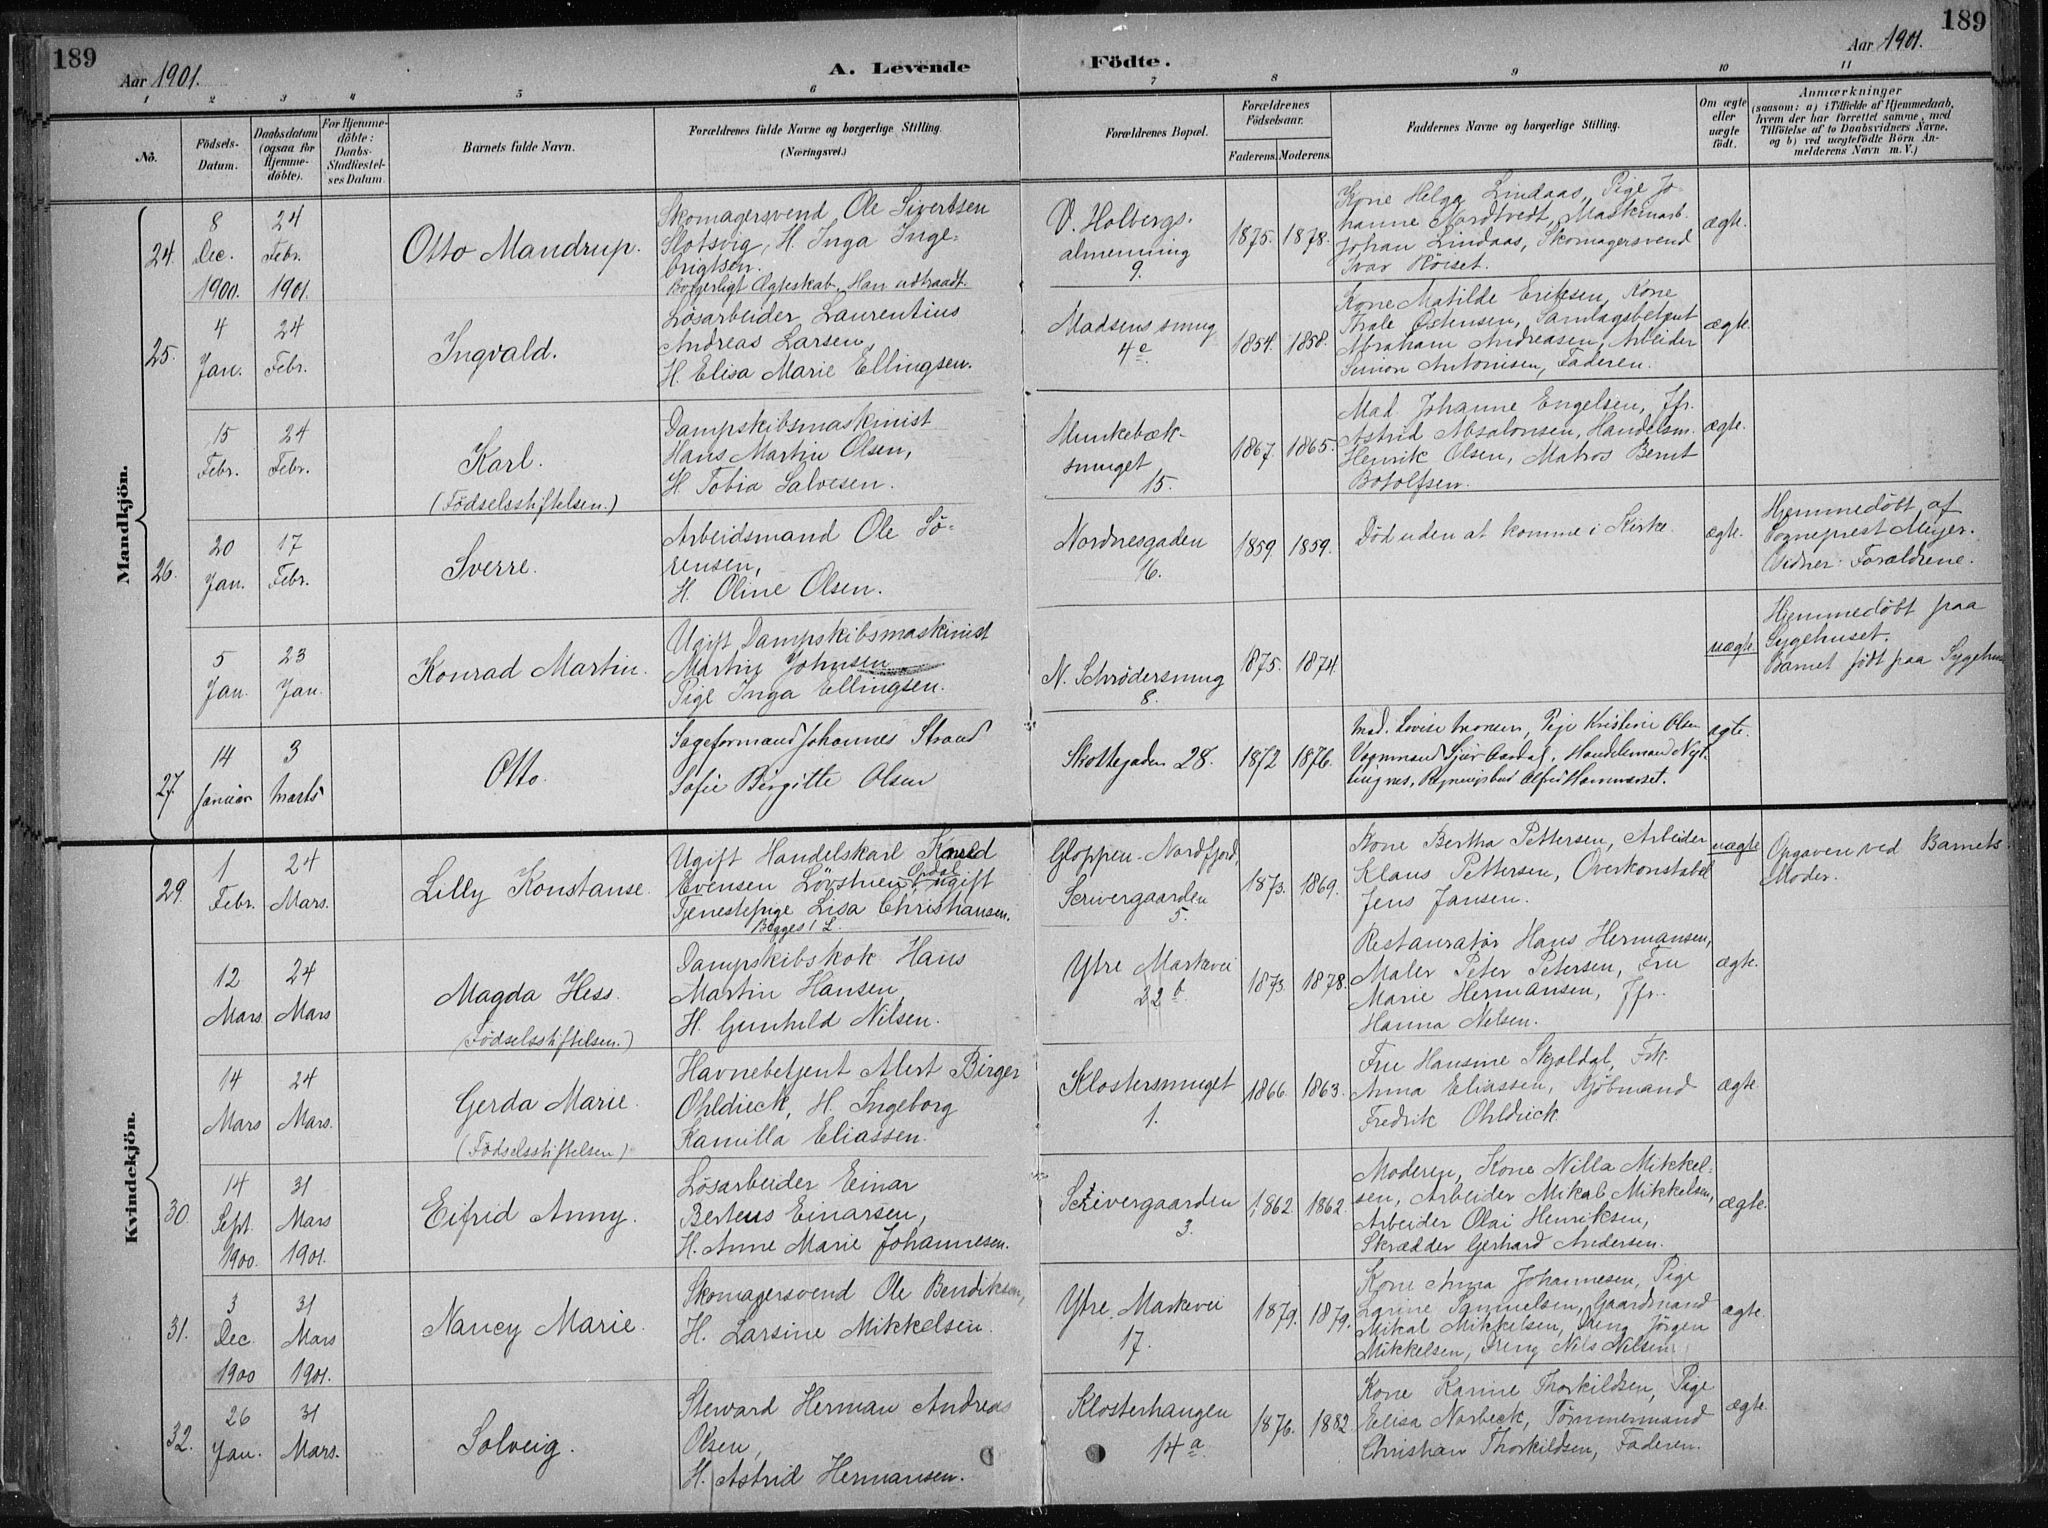 189
189
Aar 1901.
A. Levende
Födte.
Aar 1901.
1 2 3 4 5 6 7 8 9 10 11
No.
Födsels-
Datum.
Daabsdatum
(ogsaa for
Hjemme-
döbte).
For Hjemme-
döbte:
Daabs-
Stadfæstel-
ses Datum
Barnets fulde Navn.
Forældrenes fulde Navne og borgerlige Stilling.
(Næringsvei.)
Forældrenes Bopæl.
Forældrenes
Födselsaar.
Faderens.
Moderens.
Faddernes Navne og borgerlige Stilling.
Om ægte
eller
uægte
födt.
Anmærkninger
(saasom: a) i Tilfælde af Hjemmedaab,
hvem der har forrettet samme, med
Tilföielse af to Daabsvidners Navne,
og b) ved uægtefödte Börn An-
melderens Navn m. V.)
Mandkjön.
24.
8
Dec.
1900.
24
Febr.
1901.
Otto Mandrup.
Skomagersvend Ole Sivertsen
Slotsvig, H. Inga Inge-
brigtsen.
Borgerligt Ægteskab. Han udtraadt.
V. Holbergs-
almenning
9.
1875.
1878.
Kone Helga Lindaas, Pige Jo-
hanne Nordtvedt, Maskinarb.
Johan Lindaas, Skomagersvend
Ivar Röiset.
ægte.
25.
4
Jan.
24
Febr.
Ingvald.
Løsarbeider Laurentius
Andreas Larsen,
H. Elisa Marie Ellingsen.
Madsens smug
4c.
1854.
1858.
Kone Matilde Eriksen, Kone
Thale Ostensen, Samlagsbetjnt
Abraham Andreasen, Arbeider
Simon Antonisen, Faderen.
ægte.
15
Febr.
24
Febr.
Karl.
(Födselsstiftelsen.)
Dampskibsmaskinist
Hans Martin Olsen,
H. Tobia Salvesen.
Munkebæk-
smuget
15.
1867.
1865.
Mad. Johanne Engelsen, Jfr.
Astrid Absalonsen, Handelsm.
Henrik Olsen, Matros Bernt
Botolfsen.
ægte.
26.
20
Jan.
17
Febr.
Sverre.
Arbeidsmand Ole Sö-
rensen,
H. Oline Olsen.
Nordnesgaden
16.
1859
1859.
Død uden at komme i Kirke.
ægte.
Hjemmedöbt af
Sogneprest Meyer.
Vidner: Forældrene.
5
Jan.
23
Jan.
Konrad Martin.
Ugift Dampskibsmaskinist
Martin Johnsen
Pige Inga Ellingsen.
N. Schrødersmug
8.
1875.
1874.
uægte.
Hjemmedöbt paa
Sygehuset.
Barnet født paa Sygehus
27.
14
Januar
3
Marts
Otto.
Sageformand Johannes Strand
Sofie Birgitte Olsen
Skottegaden 28.
1872
1876.
Mad. Lovise Monsen, Pige Kristine Olsen
Vognmand Sjur Aardal, Handelsmand
Alfred Hammerset.
ægte.
Kvindekjön.
29.
1
Febr.
24
Mars.
Lilly Konstanse.
Ugift Handelskarl Knud
Evensen Løvstuen Opdal, ugift
Tjenestepige Lisa Christiansen.
Begges 1 L.
Gloppen-Nordfjord,
Scrivergaarden
5.
1873.
1869.
Kone Bertha Pettersen, Arbeider
Klaus Pettersen, Overkonstabel
Jens Jansen.
uægte
Opgaven ved Barnets
Moder.
12
Mars
24
Mars
Magda Hess.
(Födselsstiftelsen.)
Dampskibskok Hans
Martin Hansen
H. Gunhild Nilsen.
Ytre Markevei
22b.
1873.
1878.
Restauratør Hans Hermansen,
Maler Peter Petersen, Fru
Marie Hermansen, Jfr.
Hanna Nilsen.
ægte.
14
Mars
24
Mars.
Gerda Marie.
(Födselsstiftelsen)
Havnebetjent Alert Birger
Ohldieck, H. Ingeborg
Kamilla Eliassen.
Klostersmuget
1.
1866.
1863.
Fru Hansine Skjoldal, Frk.
Anna Eliassen, Kjöbmand
Fredrik Ohldieck.
ægte.
30.
14
Sept.
1900.
31
Mars
1901.
Eifrid Anny.
Løsarbeider Einar
Berteus Einarsen,
H. Anne Marie Johannesen.
Scrivergaarden
3.
1862.
1862.
Moderen, Kone Nilla Mikkel-
sen, Arbeider Mikal Mikkelsen,
Arbeider Olai Henriksen,
Skrædder Gerhard Andersen.
ægte.
31.
3
Dec.
1900
31
Mars
1901.
Nancy Marie.
Skomagersvend Ole Bendiksen,
H. Larsine Mikkelsen.
Ytre Markevei
17.
1879.
1879.
Kone Anna Johannesen, Pige
Larine Samuelsen, Gaardmand
Mikal Mikkelsen, Dreng Jörgen
Mikkelsen, Dreng Nils Nilsen
ægte.
32.
26
Jan.
31
Mars.
Solveig.
Steward Herman Andreas
Olsen,
H. Astrid Hermansen.
Klosterhaugen
14a.
1876.
1882.
Kone Karine Thorkildsen, Pige
Elisa Norbeck, Tömmermand
Christian Thorkildsen, Faderen.
ægte.